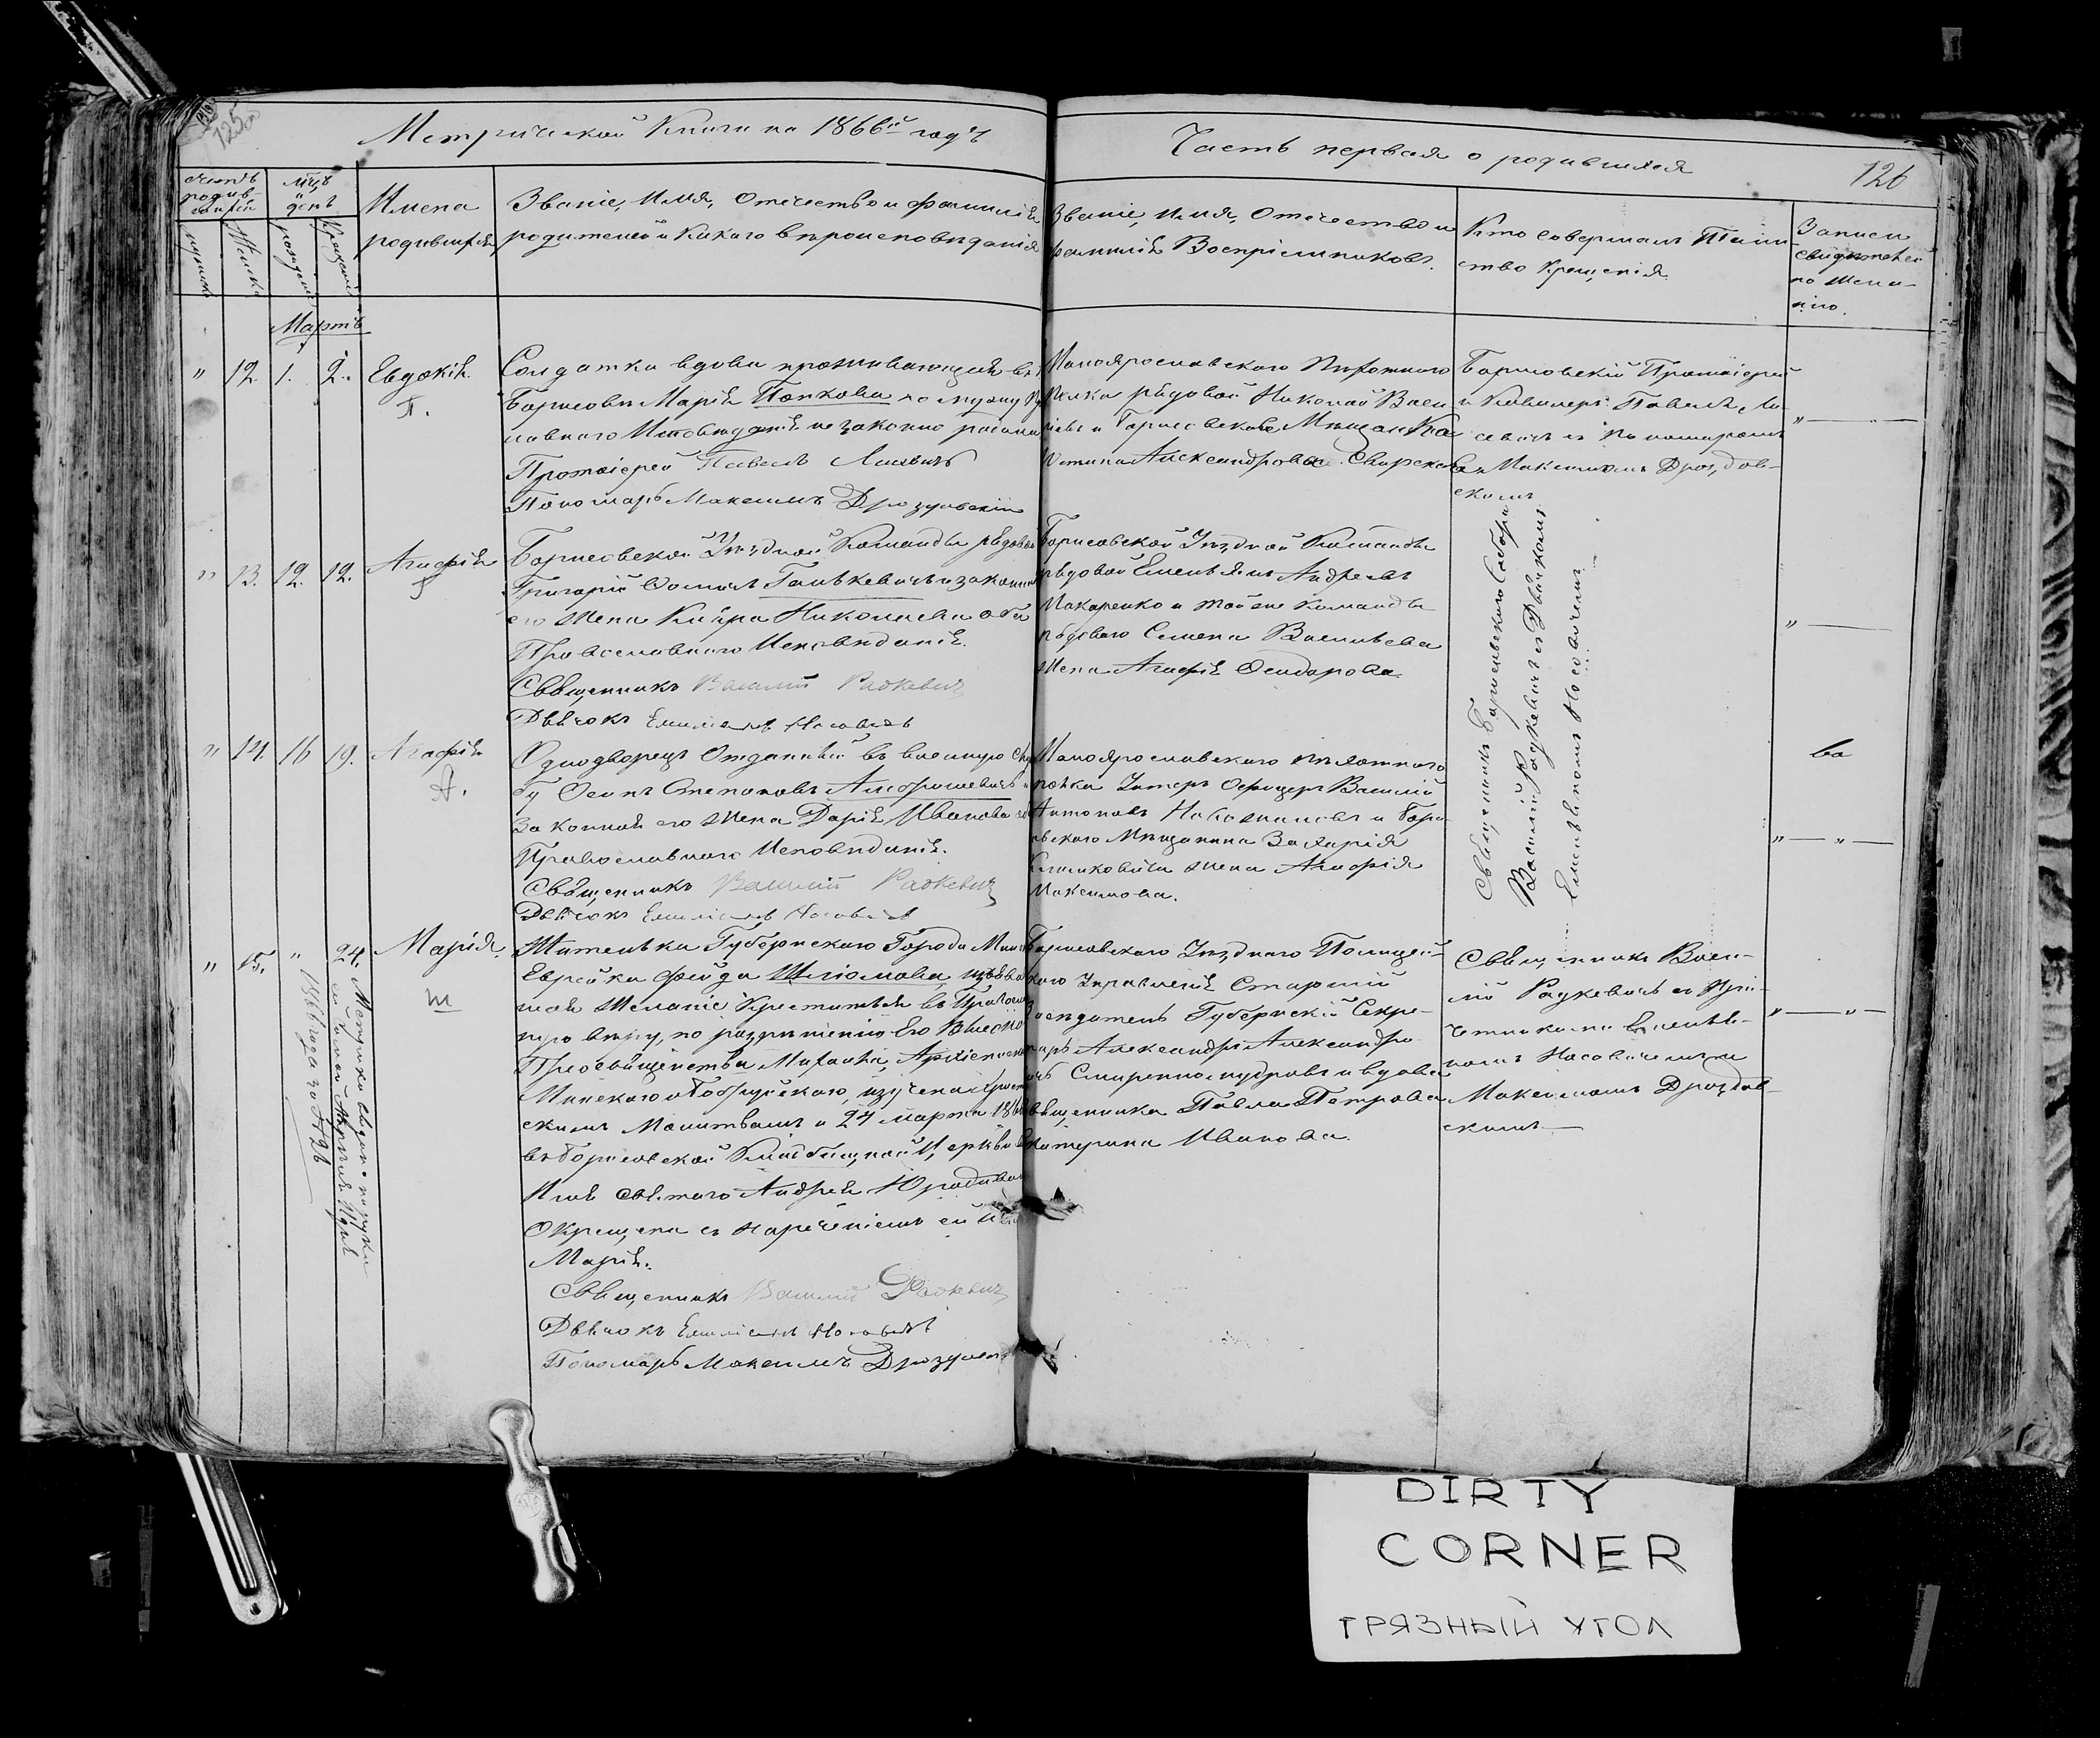 125
Метрической Книги на 1866й годъ
Часть первая о родившихся
126
счетъ родив-
шихся
мѣц. и день
Имена
родившихся
Званіе, Имя, Отечество и фамилія
родителей и Какого вѣроисповѣданія
Званіе, имя, Отечество и
фамилія Воспріемниковъ.
Кто совершалъ Таин-
ство Крещенія
Записи
свидѣтелей
по жела-
нію.
Мартъ
" 12. 1. 2. Евдокія.
П.
Солдатка вдова проживающая въ г.
Борисовѣ Марія Попкова по мужу
славнаго Исповѣданія незаконно
Протоіерей Павелъ
Пономарь Максимъ Дроздовскій
Малоярославскаго Пѣхотнаго
Полка рядовой Николай Васи
и Борисовская Мѣщанка
Александрова
Борисовскій Протоіерей
и Кавалеръ Павелъ
съ Пономаремъ
Максимомъ Дроздов-
скимъ
" 13. 12. 12. Агафія
Борисовской Уѣздной Команды рядовой
Григорій Ѳоминъ Гонькевичъ и законная
его жена Николаева оба
Православнаго Исповѣданія.
Священникъ Василій Радкевичъ
Дьячокъ Емиліанъ Носовичъ
Борисовской Уѣздной Команды
рядовой Емельянъ Андреевъ
Макаренко и той же Команды
рядоваго Семена Васильева
жена Агафія Ѳеодорова
Священникъ Борисовскаго Собора
Василій Радкевичъ съ Дьячкомъ
Емиліаномъ Носовичемъ
" 14. 16 19. Агафія
А.
Однодворецъ Отданный въ военную служ
бу Осипъ Степановъ Амброшевичъ и
Законная его жена Дарія Иванова оба
Православнаго Исповѣданія.
Священникъ Василій Радкевичъ
Дьячокъ Емиліанъ Носовичъ
Малоярославскаго пѣхотнаго
полка Унтеръ Офицеръ Василій
Антоновъ и Бори
овскаго Мѣщанина Захарія
Климковича жена Агафія
Максимова.
" 15. " 24. Марія.
Ш
Жителька Губернскаго Города Минска
Еврейка Фейда Шліомова, изъяви
шая желаніе Креститься въ Православ
ную вѣру, по разрѣшенію Его Высоко
Преосвященства Михаила, Архіепископа
Минскаго и Бобруйскаго, изучена Христі
скимъ Молитвамъ и 24 марта 1866
въ Борисовской Кладбищной Церкви во
Имя Святаго Андрея Юродиваго
Окрещена съ нареченіемъ ей Имя
Марія.
Священникъ Василій Радкевичъ
Дьячокъ Емиліанъ Носовичъ
Пономарь Максимъ Дроздовскій
Борисовскаго Уѣзднаго Полицей-
скаго Управленія Старшій
Засѣдатель Губернскій Секре-
тарь Александръ Александро
вичъ Смиренномудровъ и вдова
священника Павла Петрова
Катерина Иванова.
Священникъ Васи-
лій Радкевичъ съ При-
четниками Емилiа-
номъ Носовичемъ и
Максимомъ Дроздов-
скимъ
Метрика выдана на руки
1866 года за № 298
DIRTY
CORNER
ГРЯЗНЫЙ УГОЛ